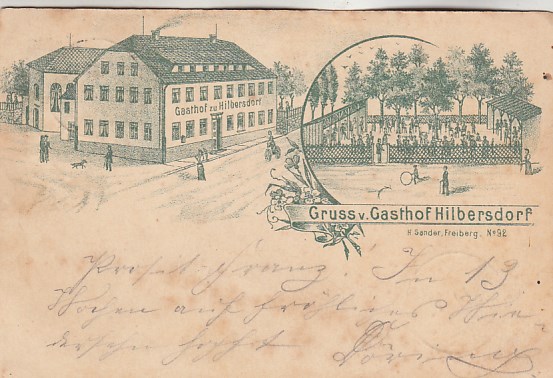 Gasthof zu Hilbersdorf
Gruss v. Gasthof Hilbersdorf
H. Sander, Freiberg. No 92
Prosit Franz! In 13
Wochen auf fröhliches Wie-
dersehn hofft